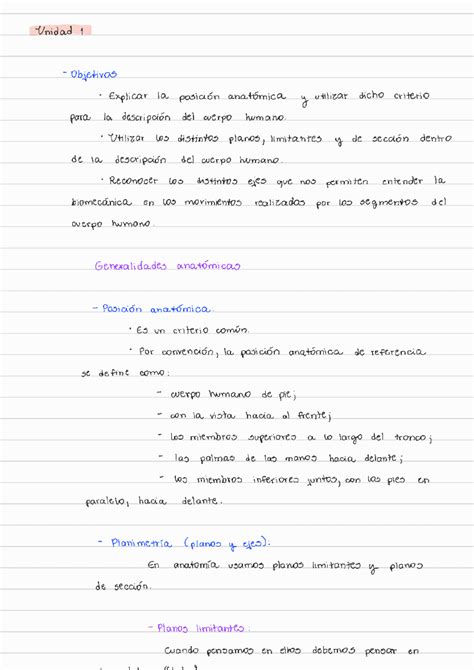 Unidad 1
- Objetivos
· Explicar la posición anatómica y utilizar dicho criterio
para la descripción del cuerpo humano.
· Utilizar los distintos planos, limitantes y de sección dentro
de la descripción del cuerpo humano.
· Reconocer los distintos ejes que nos permiten entender la
biomecánica en los movimientos realizados por los segmentos del
cuerpo humano.
Generalidades anatómicas
- Posición anatómica:
· Es un criterio común.
· Por convención, la posición anatómica de referencia
se define como:
- cuerpo humano de pie;
- con la vista hacia al frente;
- los miembros superiores a lo largo del tronco;
- las palmas de las manos hacia delante;
- los miembros inferiores juntos, con los pies en
paralelo, hacia delante.
- Planimetría (planos y ejes):
En anatomía usamos planos limitantes y planos
de sección.
- Planos limitantes:
Cuando pensamos en ellos debemos pensar en